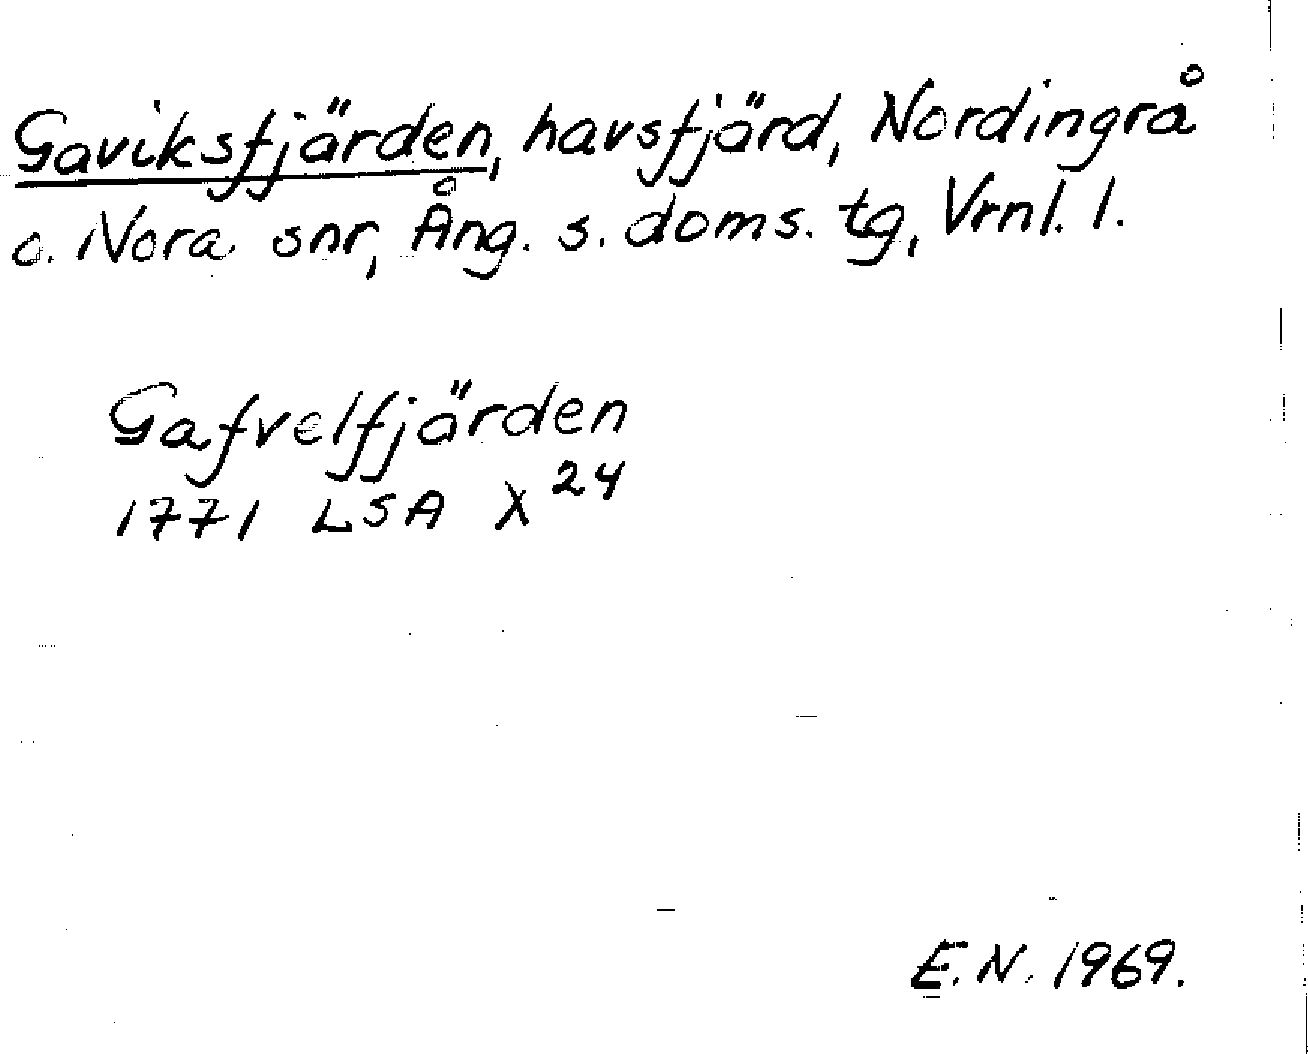 Gaviksfjärden, havsfjärd, Nordingrå
o. Nora snr, Ång. s. doms. tg, Vrnl. l.
Gafvelfjärden
1771 LSA X 24
E.N. 1969.